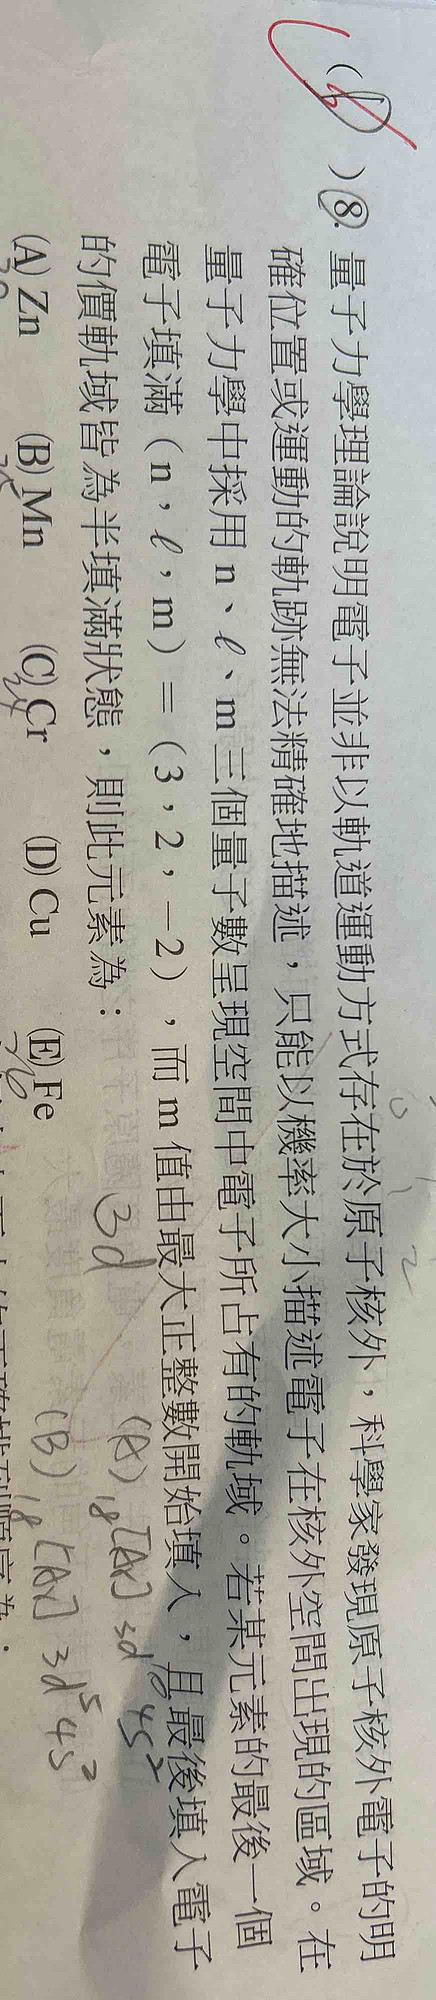 ( D ) 8. 量子力學理論說明電子並非以軌道運動方式存在於原子核外，科學家發現原子核外電子的明
確位置或運動的軌跡無法精確地描述，只能以機率大小描述電子在核外空間出現的區域。在
量子力學中採用 n、ℓ、m 三個量子數呈現空間中電子所占有的軌域。若某元素的最後一個
電子填滿（n，ℓ，m）＝（3，2，－2），而 m 值由最大正整數開始填入，且最後填入電子
的價軌域皆為半填滿狀態，則此元素為：
(A) Zn (B) Mn (C) Cr (D) Cu (E) Fe
0 1 2
3d
(A) 18[Ar] 3d10 4s2
(B) 18[Ar] 3d5 4s2
24